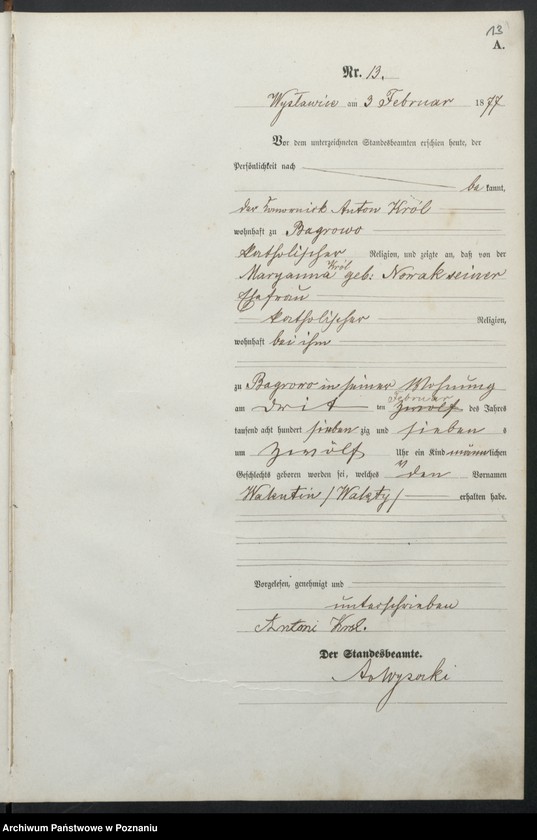 13
A.
Nr. 13.
Wysławice am 3 Februar 1877
Vor dem unterzeichneten Standesbeamten erschien heute, der
Persönlichkeit nach
be kannt,
der Komornik Anton Król
wohnhaft zu Bagrowo
katholischer Religion, und zeigte an, daß von der
Król
Maryanna geb: Nowak seiner
Ehefrau
katholischer Religion,
wohnhaft bei ihm
zu Bagrowo in seiner Wohnung
Februar
am drit ten zwölf des Jahrs
tausend acht hundert sieben zig und sieben s
um zwölf Uhr ein Kind männlichen
Geschlechts geboren worden sei, welches den Vornamen
Walentin / Walęty / erhalten habe.
Vorgelesen, genehmigt und
unterschrieben
Antoni Krol.
Der Standesbeamte.
Wysocki
Archiwum Państwowe w Poznaniu